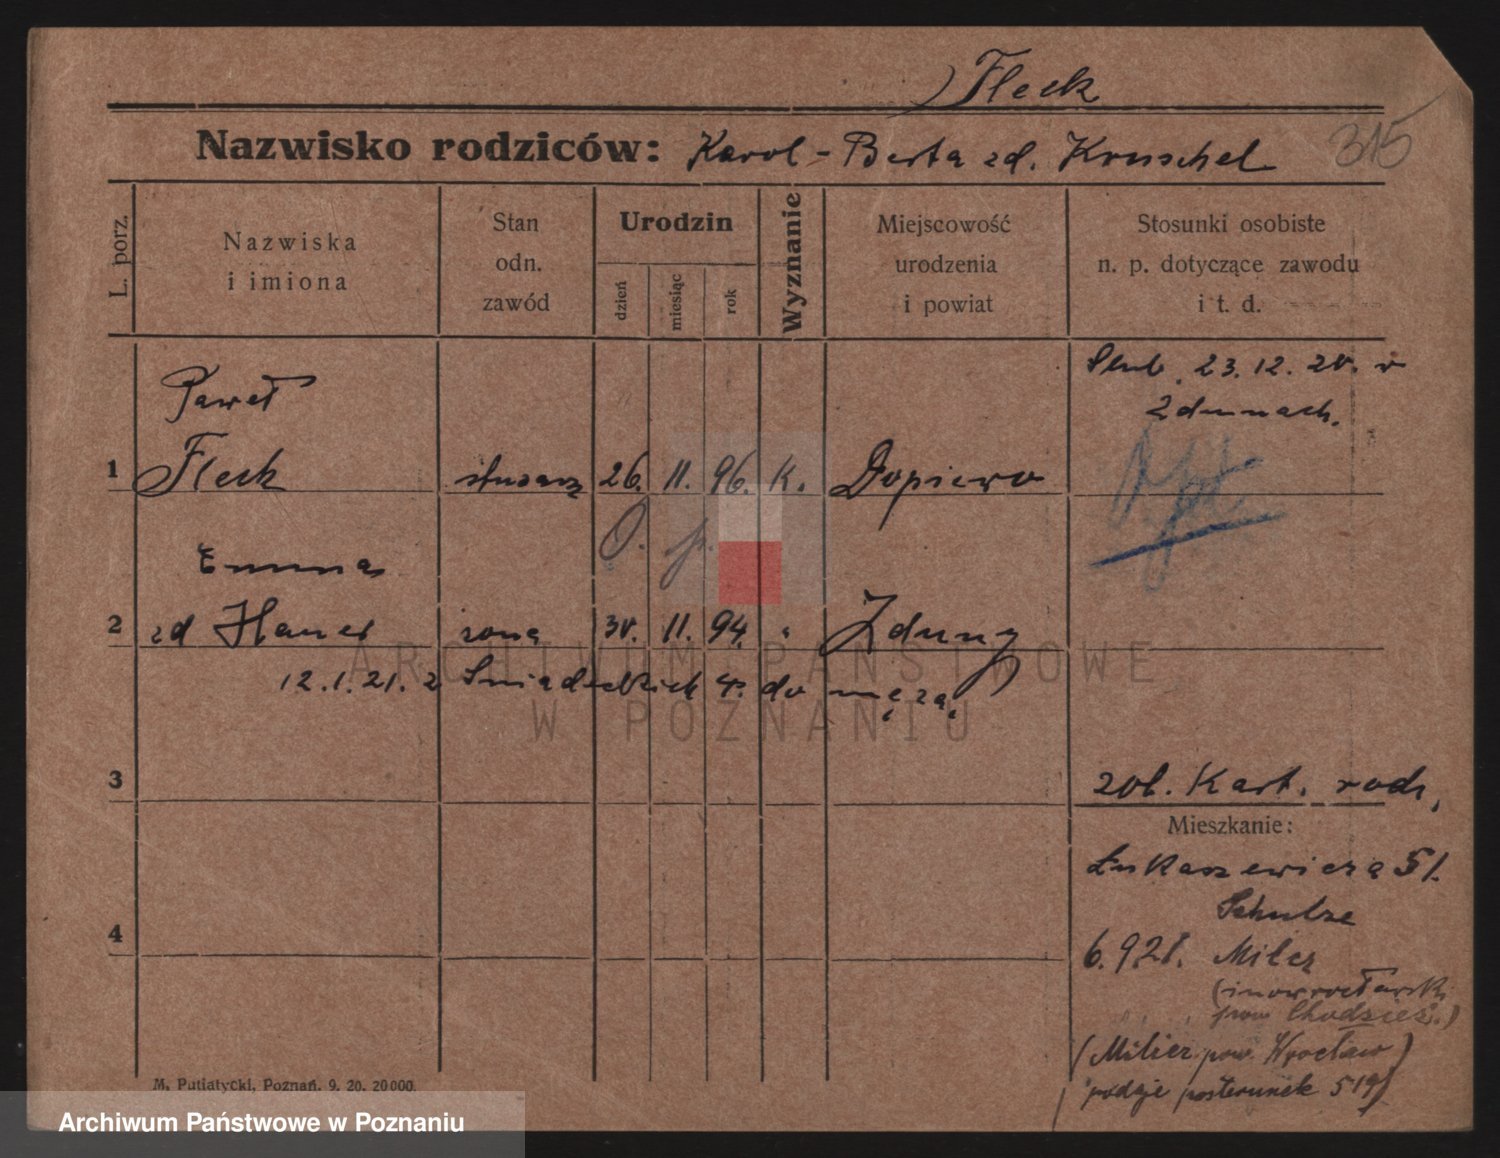 Fleck
Nazwisko rodziców: Karol - Berta zd. Kruschel 315
L. porz.
Nazwiska
i imiona
Stan
odn.
zawód
Urodzin
dzień
miesiąc
rok
Wyznanie
Miejscowość
urodzenia
i powiat
Stosunki osobiste
n. p. dotyczące zawodu
i t. d.
Ślub 23.12.20. w
Zdunach.
Paweł
1 Fleck ślusarz 26. 11. 96. K. Dopiewo
Emma
2 zd Haner żona 30. 11. 94. " Zduny
12.1.21. z Śniadeckich 4. do męża.
3
zob. Kart. rodz.
Mieszkanie:
Łukaszewicza 51.
Schulze
4
6.9.21. Milcz
(inowrocławski
pow Chodzież.)
(Milicz pow. Wrocław)
podaje posterunek 519)
M. Putiatycki, Poznań. 9. 20. 20000.
ARCHIWUM PAŃSTWOWE
W POZNANIU
Archiwum Państwowe w Poznaniu